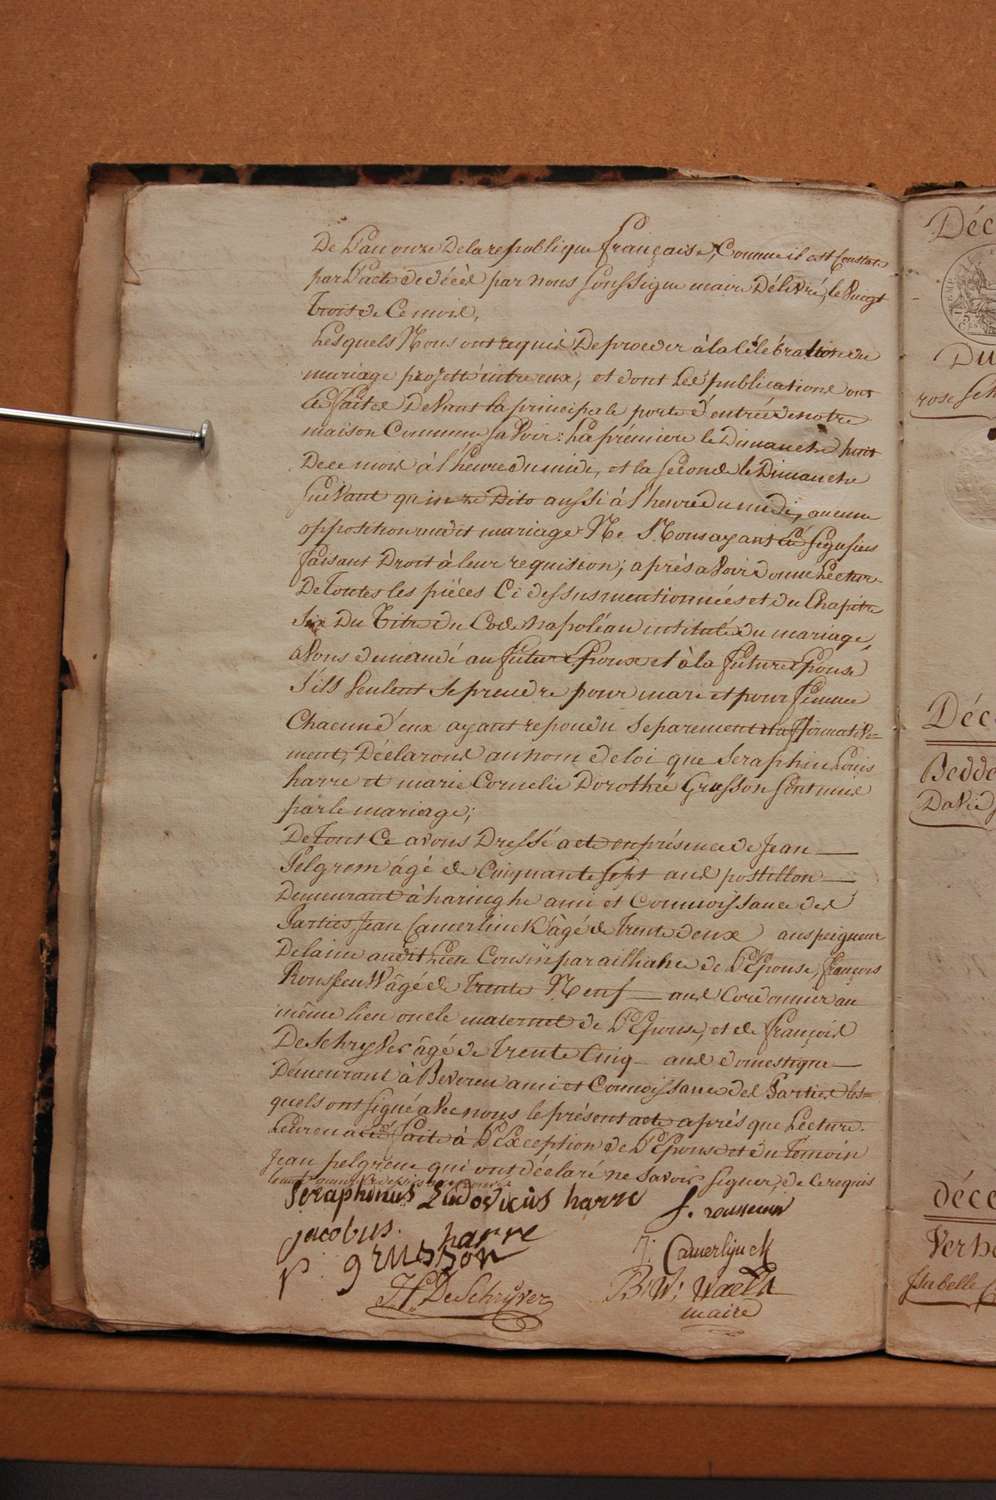 De L'an onze De la republique française, Comme il est Constaté
par L'acte de décès par nous soussigné maire Délivré, le Vingt
Trois de Ce mois,
Lesquels Nous ont requis De proceder à la Célébration du
mariage projetté entre eux, et dont Les publications ont
été faites Devant la principale porte d'entrée de notre
maison Commune, savoir: La première le Dimanche huit
De ce mois à l'heure du midi, et la seconde le Dimanche
suivant quinze Dito aussi à l'heure du midi, aucune
opposition audit mariage Ne Nous ayant été signifiée
faisant Droit à leur requisition; après avoir donné Lecture
De Toutes les pièces Ci dessus mentionnées et du Chapitre
six Du Titre du Code napoléan intitulé du mariage,
avons demandé au futur Epoux et à la future Epouse
s'ils veulent se prendre pour mari et pour femme
Chacun d'eux ayant repondu separement et affirmative-
ment, Déclarons au nom de loi que Seraphin Louis
harre et marie Cornelie Dorothée Grusson sont unis
par le mariage;
De Tout Ce avons Dressé acte en présence de Jean
Pelgrom âgé de Cinquante sept ans postillon
Demeurant à haringhe ami et Connoissance des
Parties Jean Camerlinck âgé de Trente deux ans peigneur
De laine audit Lieu Cousin par alliance de L'Epouse, françois
Rousseuw âgé de Trente Neuf ans Cordonnier au
même lieu oncle maternel de L'Epouse, et de françois
De Schryver âgé de Trente Cinq ans domestique
Démeurant à Beveren ami et Connoissance des Parties les-
quels ont signé avec nous le présent acte après que Lecture
Leur en a été faite à L'Exception de L'Epouse et du Témoin
Jean pelgrom qui ont déclaré ne savoir signer, de ce requis
Seraphinus Ludovicus harre f. rousseuw
jacobus harre
p: grusson J: Camerlynck
J F DeSchryver B: W: Waels
maire
Déc
Du
rose
Déc
Bedde
David
déce
Verh
Isabelle